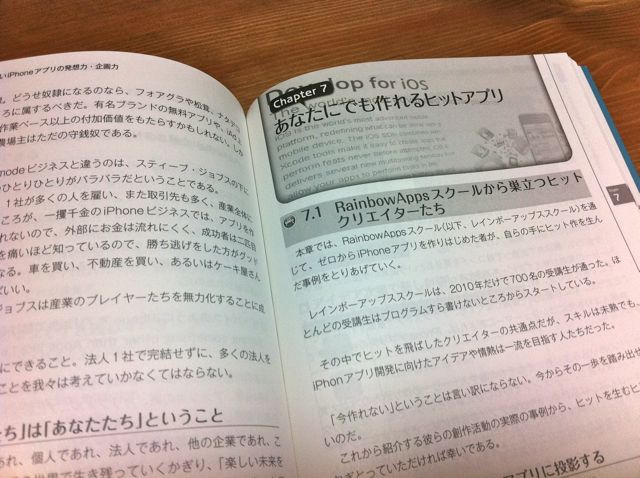 いiPhoneアプリの発想力・企画力
。どうせ奴隷になるのなら、フォアグラや松茸、
ろに属するべきだ。有名ブランドの無料アプリや、
作業ベース以上の付加価値をもたらすかもしれない。しか
農場主はただの守銭奴である。
modeビジネスと違うのは、スティーブ・ジョブスの下に
ひとりひとりがバラバラだということである。
1社が多くの人を雇い、また取引先も多く、産業全体に
ころが、一攫千金のiPhoneビジネスでは、アプリを作
れないので、外部にお金は流れにくく、成功者は二匹目
を痛いほど知っているので、勝ち逃げをした方がグッド
なる。車を買い、不動産を買い、あるいはケーキ屋さん
ばいい。
ジョブスは産業のプレイヤーたちを無力化することに成
にできること。法人1社で完結せずに、多くの法人を
ことを我々は考えていかなくてはならない。
たち」は「あなたたち」ということ
あれ、個人であれ、法人であれ、他の企業であれ、こ
世界で生き残っていくかぎり、「楽しい未来を
Develop for iOS
Chapter 7
The world's
あなたにでも作れるヒットアプリ
iOS is the world's most advanced mobile
platform, redefining what can be done with
mobile device. The iOS SDK
Xcode tools make it easy to create
perform tests
delivers several
enjoy your apps to perform tasks
7.1 RainbowAppsスクールから巣立つヒット
クリエイターたち
本章では、RainbowAppsスクール(以下、レインボーアップススクール)を通
じて、ゼロからiPhoneアプリを作りはじめた者が、自らの手にヒット作を生ん
だ事例をとりあげていく。
レインボーアップススクールは、2010年だけで700名の受講生が通った。ほ
とんどの受講生はプログラムすら書けないところからスタートしている。
その中でヒットを飛ばしたクリエイターの共通点だが、スキルは未熟でも、
iPhonアプリ開発に向けたアイデアや情熱は一流を目指す人たちだった。
「今作れない」ということは言い訳にならない。今からその一歩を踏み出せ
いのだ。
これから紹介する彼らの創作活動の実際の事例から、ヒットを生むヒ
かぎとっていただければ幸いである。
アプリに投影する
Chapter
7